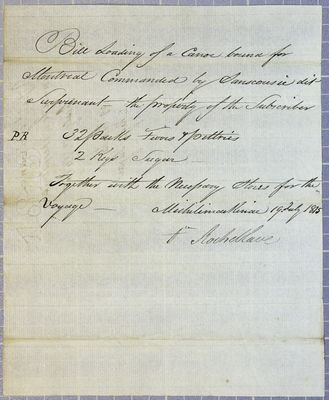 Bill Loading of a Canoe bound for
Montreal Commanded by Sanscousie dit
Surprenant the property of the Subscriber
PR 32 Packs Furrs & Peltries
2 Kegs Sugar
Together with the Necessary Stores for the
Voyage — Michilimackinac 19 July 1815
Rocheblave